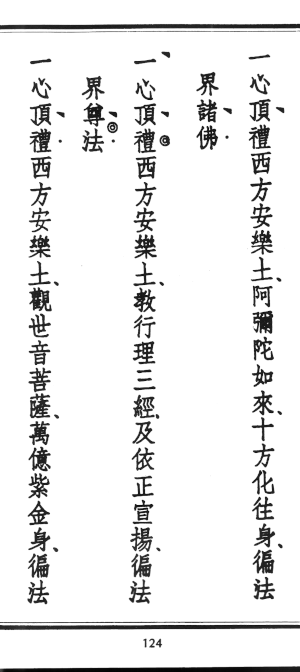 一心頂禮西方安樂土、阿彌陀如來、十方化往身、徧法
界諸佛
一心頂禮西方安樂土、教行理三經、及依正宣揚、徧法
界尊法
一心頂禮西方安樂土、觀世音菩薩、萬億紫金身、徧法
124